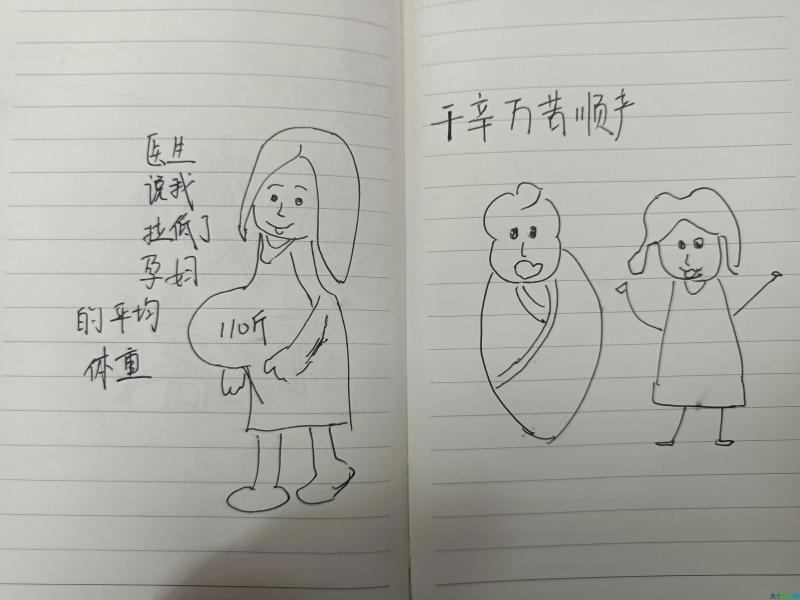 医生
说我
拉低了
孕妇
的平均
体重
110斤
千辛万苦顺产